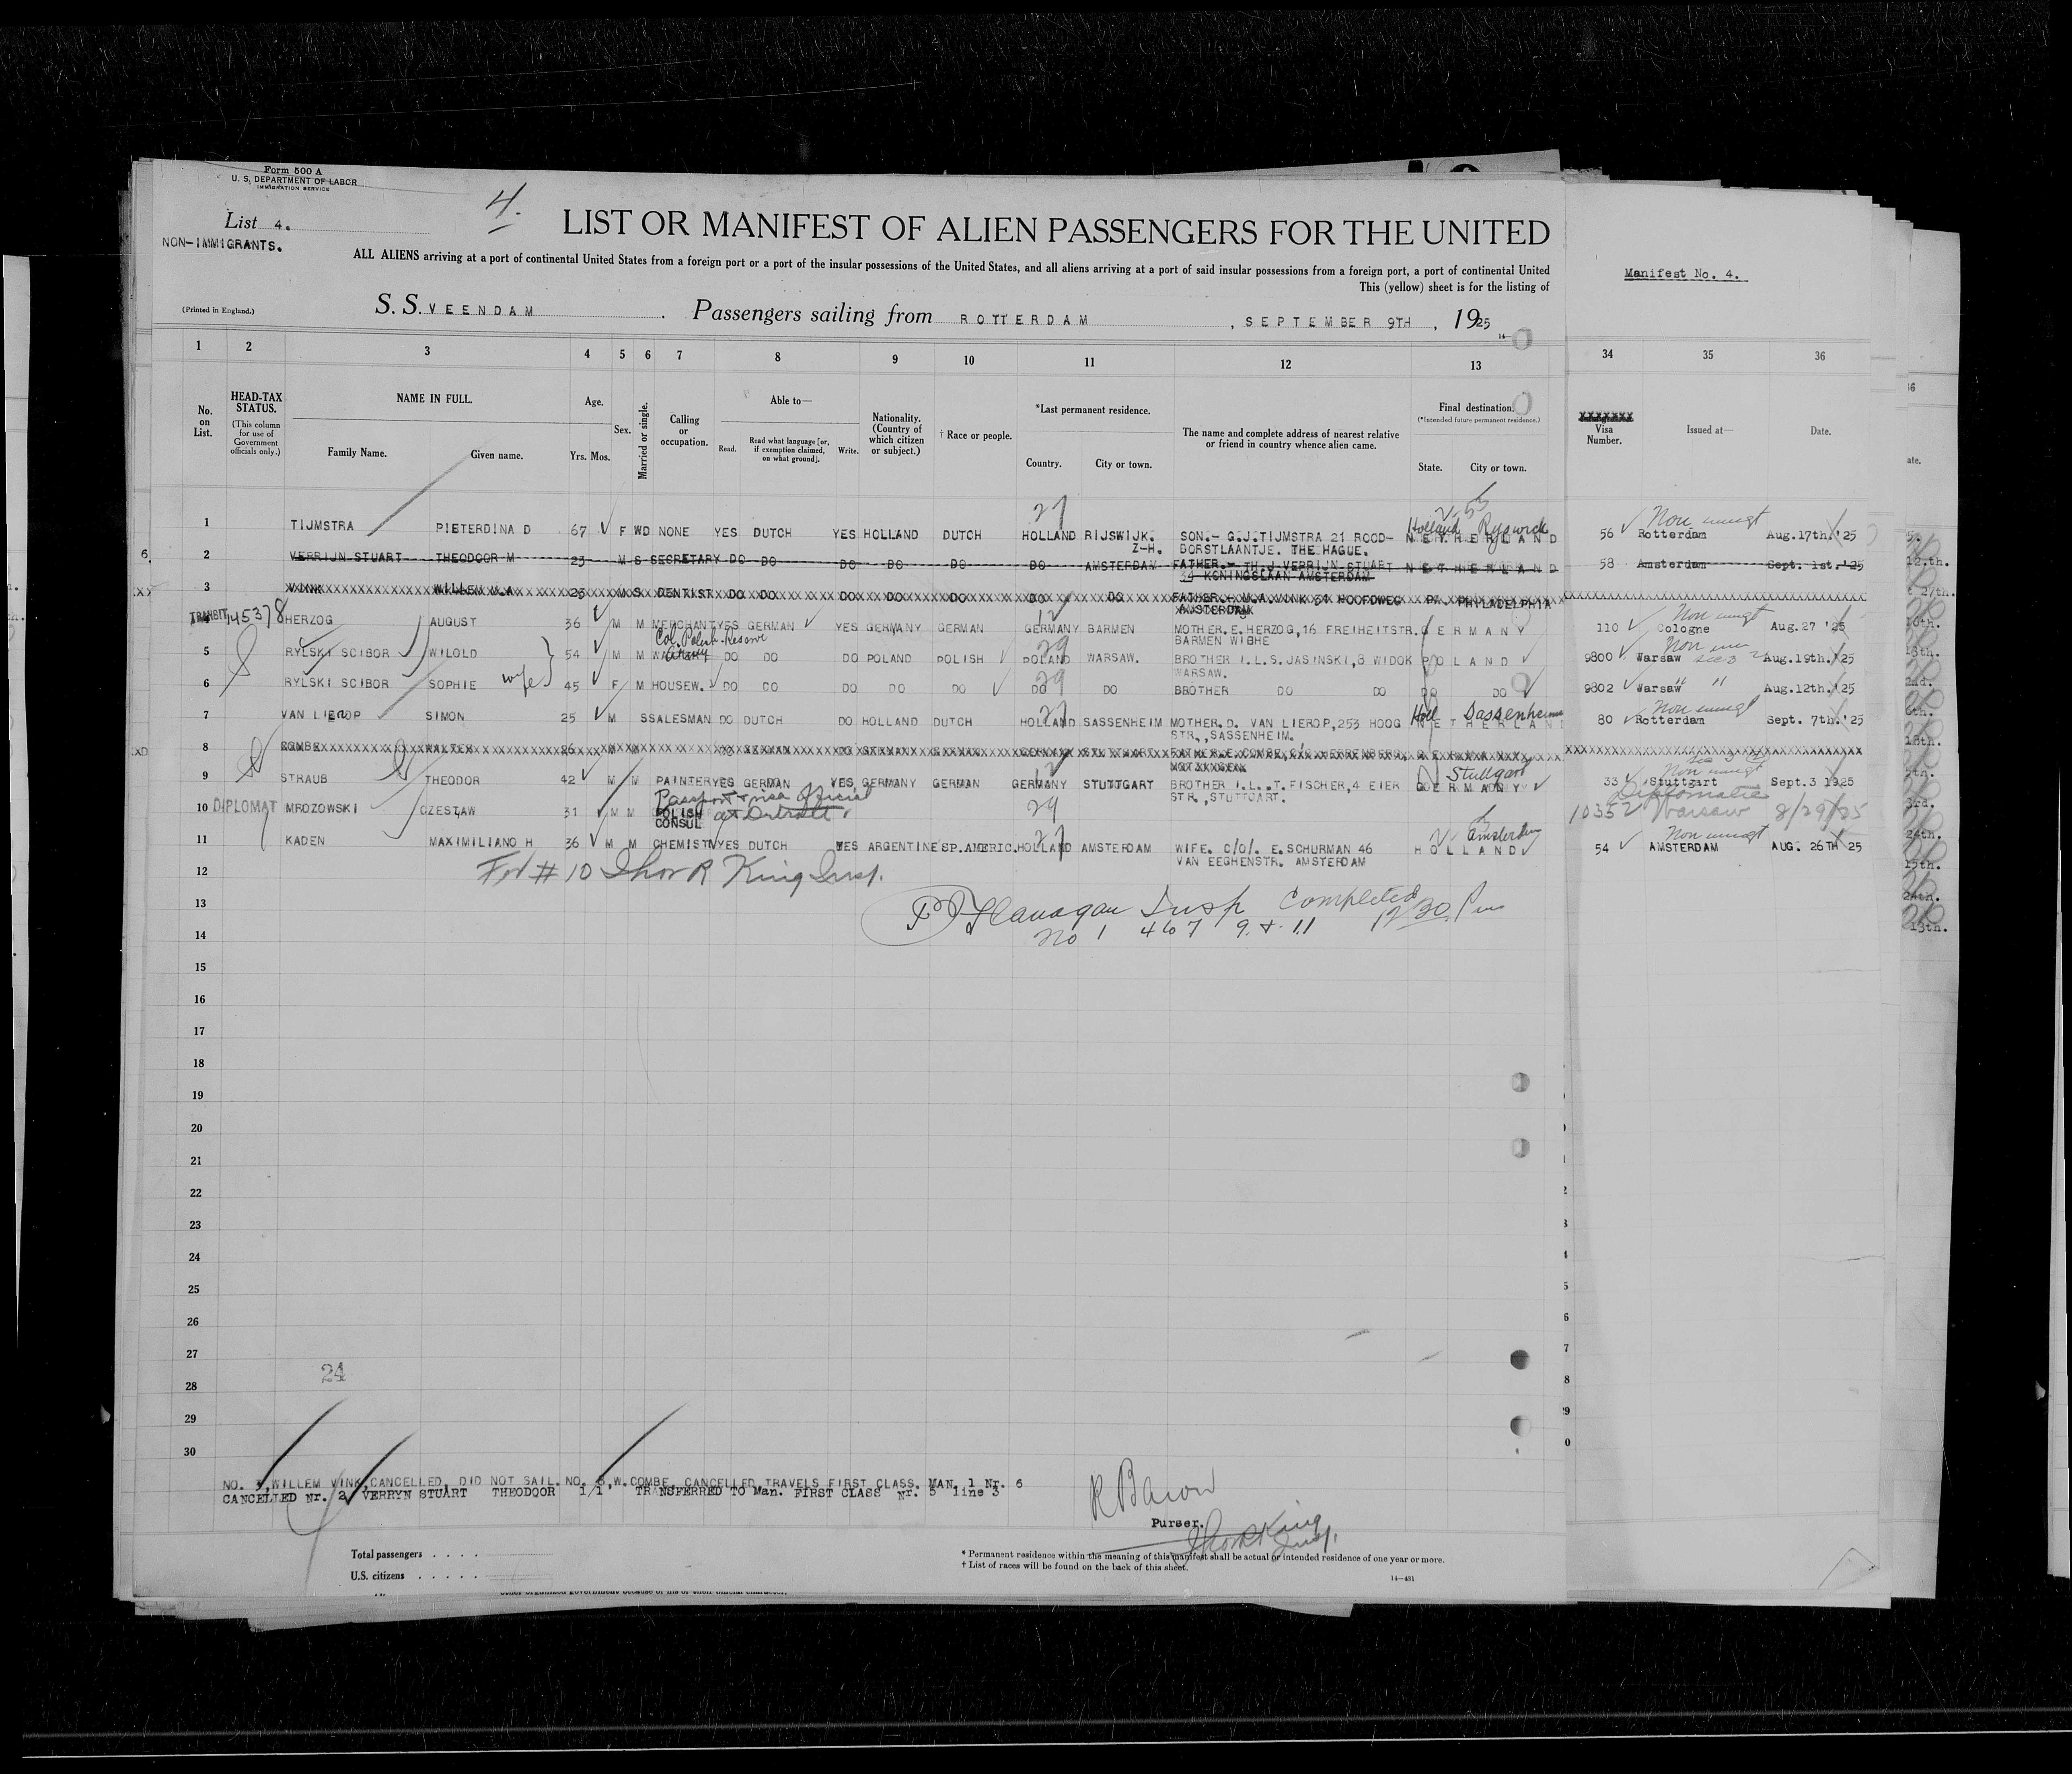 Form 500 A
U. S. DEPARTMENT OF LABOR
IMMIGRATION SERVICE
List 4.
4.
NON-IMMIGRANTS.
LIST OR MANIFEST OF ALIEN PASSENGERS FOR THE UNITED
ALL ALIENS arriving at a port of continental United States from a foreign port or a port of the insular possessions of the United States, and all aliens arriving at a port of said insular possessions from a foreign port, a port of continental United
This (yellow) sheet is for the listing of
Manifest No. 4.
(Printed in England.)
S. S. VEENDAM . Passengers sailing from ROTTERDAM , SEPTEMBER 9TH , 1925
1 2 3 4 5 6 7 8 9 10 11 12 13 34 35 36
No. on List.
HEAD-TAX STATUS. (This column for use of Government officials only.)
NAME IN FULL. Family Name. Given name.
Age. Yrs. Mos.
Sex.
Married or single.
Calling or occupation.
Able to— Read. Read what language [or, if exemption claimed, on what ground]. Write.
Nationality. (Country of which citizen or subject.)
† Race or people.
*Last permanent residence. Country. City or town.
The name and complete address of nearest relative or friend in country whence alien came.
Final destination. (*Intended future permanent residence.) State. City or town.
Visa Number.
Issued at—
Date.
27
Holland Ryswick Non immgt
1 TIJMSTRA PIETERDINA D 67 F WD NONE YES DUTCH YES HOLLAND DUTCH HOLLAND RIJSWIJK. Z-H. SON.- G.J.TIJMSTRA 21 ROOD- NETHERLAND 56 Rotterdam Aug.17th.'25
BORSTLAANTJE. THE HAGUE.
2 VERRIJN STUART THEODOOR M 23 M S SECRETARY DO DO DO DO DO DO AMSTERDAM FATHER.- TH.J.VERRIJN STUART NETHERLAND 58 Amsterdam Sept. 1st.'25
34 KONINGSLAAN AMSTERDAM
3 WINK WILLEM M.A. 23 M S DENTIST DO DO DO DO DO DO DO FATHER.- M.A.WINK 31 HOOFDWEG PA. PHILADELPHIA
AMSTERDAM
TRANSIT 145378 12 Non immgt
4 HERZOG AUGUST 36 M M MERCHANT YES GERMAN YES GERMANY GERMAN GERMANY BARMEN MOTHER.E.HERZOG,16 FREIHEITSTR. GERMANY 110 Cologne Aug.27 '25
BARMEN WIBHE
Col. Polish Reserve Army 29
5 RYLSKI SCIBOR WILOLD 54 M M DO DO DO POLAND POLISH POLAND WARSAW. BROTHER I.L.S.JASINSKI,8 WIDOK POLAND 9800 Warsaw Aug.19th.'25
WARSAW.
wife 29
6 RYLSKI SCIBOR SOPHIE 45 F M HOUSEW. DO DO DO DO DO DO DO BROTHER DO DO DO DO 9802 Warsaw " Aug.12th.'25
27 Holl Sassenheim Non immgt
7 VAN LIEROP SIMON 25 M S SALESMAN DO DUTCH DO HOLLAND DUTCH HOLLAND SASSENHEIM MOTHER.D. VAN LIEROP,253 HOOG NETHERLAND 80 Rotterdam Sept. 7th.'25
STR.,SASSENHEIM.
8 COMBE WALTER M M DO GERMAN DO GERMANY GERMAN GERMANY STUTTGART GERMANY
12 Stuttgart Non immgt
9 STRAUB THEODOR 42 M M PAINTER YES GERMAN YES GERMANY GERMAN GERMANY STUTTGART BROTHER I.L..T.FISCHER,4 EIER GERMANY 33 Stuttgart Sept.3 1925
STR.,STUTTGART.
Passport & visa official at Detroit
10 DIPLOMAT MROZOWSKI CZESŁAW 31 M M POLISH CONSUL 29 Diplomatic 10352 Warsaw 8/29/25
27 Amsterdam Non immgt
11 KADEN MAXIMILIANO H 36 M M CHEMIST YES DUTCH YES ARGENTINE SP.AMERIC. HOLLAND AMSTERDAM WIFE. C/O/. E.SCHURMAN 46 HOLLAND 54 AMSTERDAM AUG. 26TH 25
VAN EEGHENSTR. AMSTERDAM
For # 10 Thor R King Insp.
12
13
Flanagan Insp Completed 12 30 Pm
14
No 1 4 6 7 9 & 11
15
16
17
18
19
20
21
22
23
24
25
26
27
24
28
29
30
NO. 3, WILLEM WINK, CANCELLED, DID NOT SAIL. NO. 8, W. COMBE, CANCELLED, TRAVELS FIRST CLASS. MAN. 1 Nr. 6
CANCELLED Nr. 2 VERRYN STUART THEODOOR 1/1 TRANSFERRED TO Man. FIRST CLASS Nr. 5 line 3
R Baron
Purser.
Thor R King Insp.
Total passengers . . . .
U.S. citizens . . . . .
* Permanent residence within the meaning of this manifest shall be actual or intended residence of one year or more.
† List of races will be found on the back of this sheet.
14—491